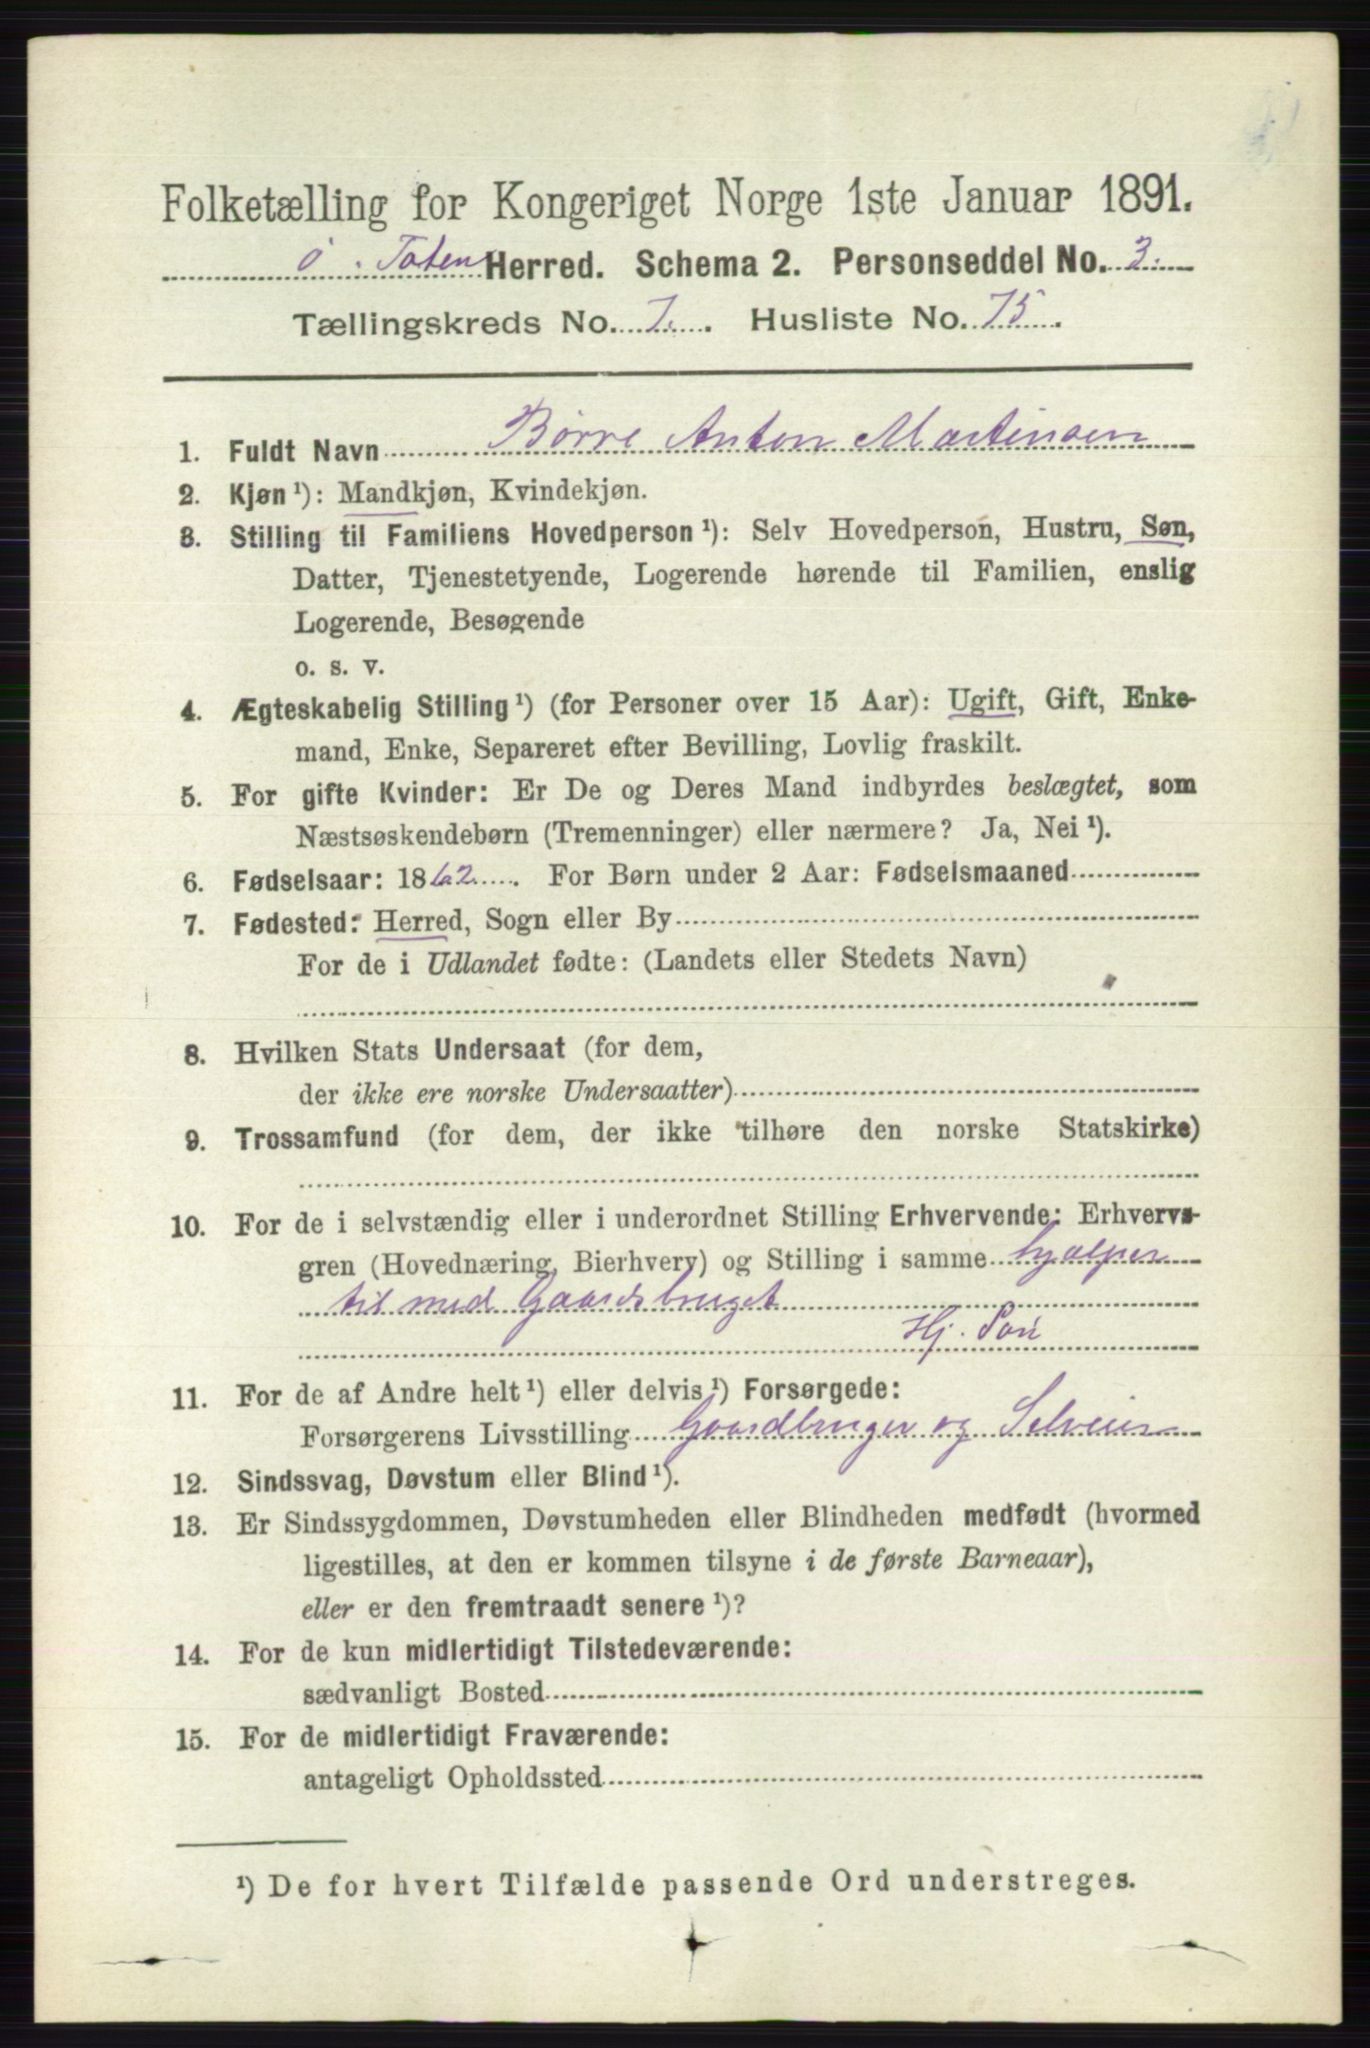 Folketælling for Kongeriget Norge 1ste Januar 1891.
Ø. Toten Herred. Schema 2. Personseddel No. 3.
Tællingskreds No. 7. Husliste No. 75.
1. Fuldt Navn Børre Anton Martinsen
2. Kjøn ¹): Mandkjøn, Kvindekjøn.
3. Stilling til Familiens Hovedperson ¹): Selv Hovedperson, Hustru, Søn,
Datter, Tjenestetyende, Logerende hørende til Familien, enslig
Logerende, Besøgende
o. s. v.
4. Ægteskabelig Stilling ¹) (for Personer over 15 Aar): Ugift, Gift, Enke-
mand, Enke, Separeret efter Bevilling, Lovlig fraskilt.
5. For gifte Kvinder: Er De og Deres Mand indbyrdes beslægtet, som
Næstsøskendebørn (Tremenninger) eller nærmere? Ja, Nei ¹).
6. Fødselsaar: 1862. For Børn under 2 Aar: Fødselsmaaned
7. Fødested: Herred, Sogn eller By
For de i Udlandet fødte: (Landets eller Stedets Navn)
8. Hvilken Stats Undersaat (for dem,
der ikke ere norske Undersaatter)
9. Trossamfund (for dem, der ikke tilhøre den norske Statskirke)
10. For de i selvstændig eller i underordnet Stilling Erhvervende: Erhvervs-
gren (Hovednæring, Bierhverv) og Stilling i samme hjælper
til med Gaardsbruget
Hj. Søn
11. For de af Andre helt ¹) eller delvis ¹) Forsørgede:
Forsørgerens Livsstilling Gaardbruger og Selveier
12. Sindssvag, Døvstum eller Blind ¹).
13. Er Sindssygdommen, Døvstumheden eller Blindheden medfødt (hvormed
ligestilles, at den er kommen tilsyne i de første Barneaar),
eller er den fremtraadt senere ¹)?
14. For de kun midlertidigt Tilstedeværende:
sædvanligt Bosted
15. For de midlertidigt Fraværende:
antageligt Opholdssted
¹) De for hvert Tilfælde passende Ord understreges.